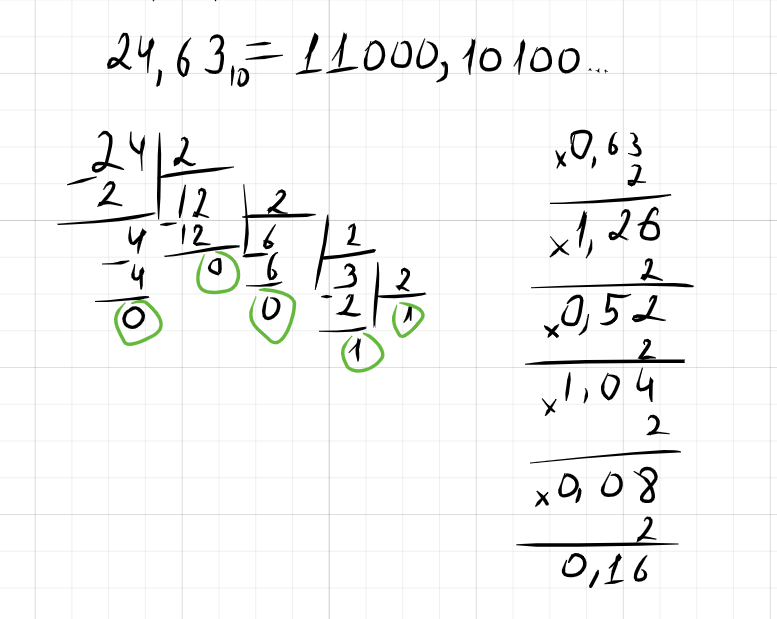 24,63₁₀ = 11000,10100...
24 2
- 2 12 2
4 - 12 6 2
- 4 0 - 6 3 2
0 0 - 2 1
1
x 0,63
2
x 1,26
2
x 0,52
2
x 1,04
2
x 0,08
2
0,16